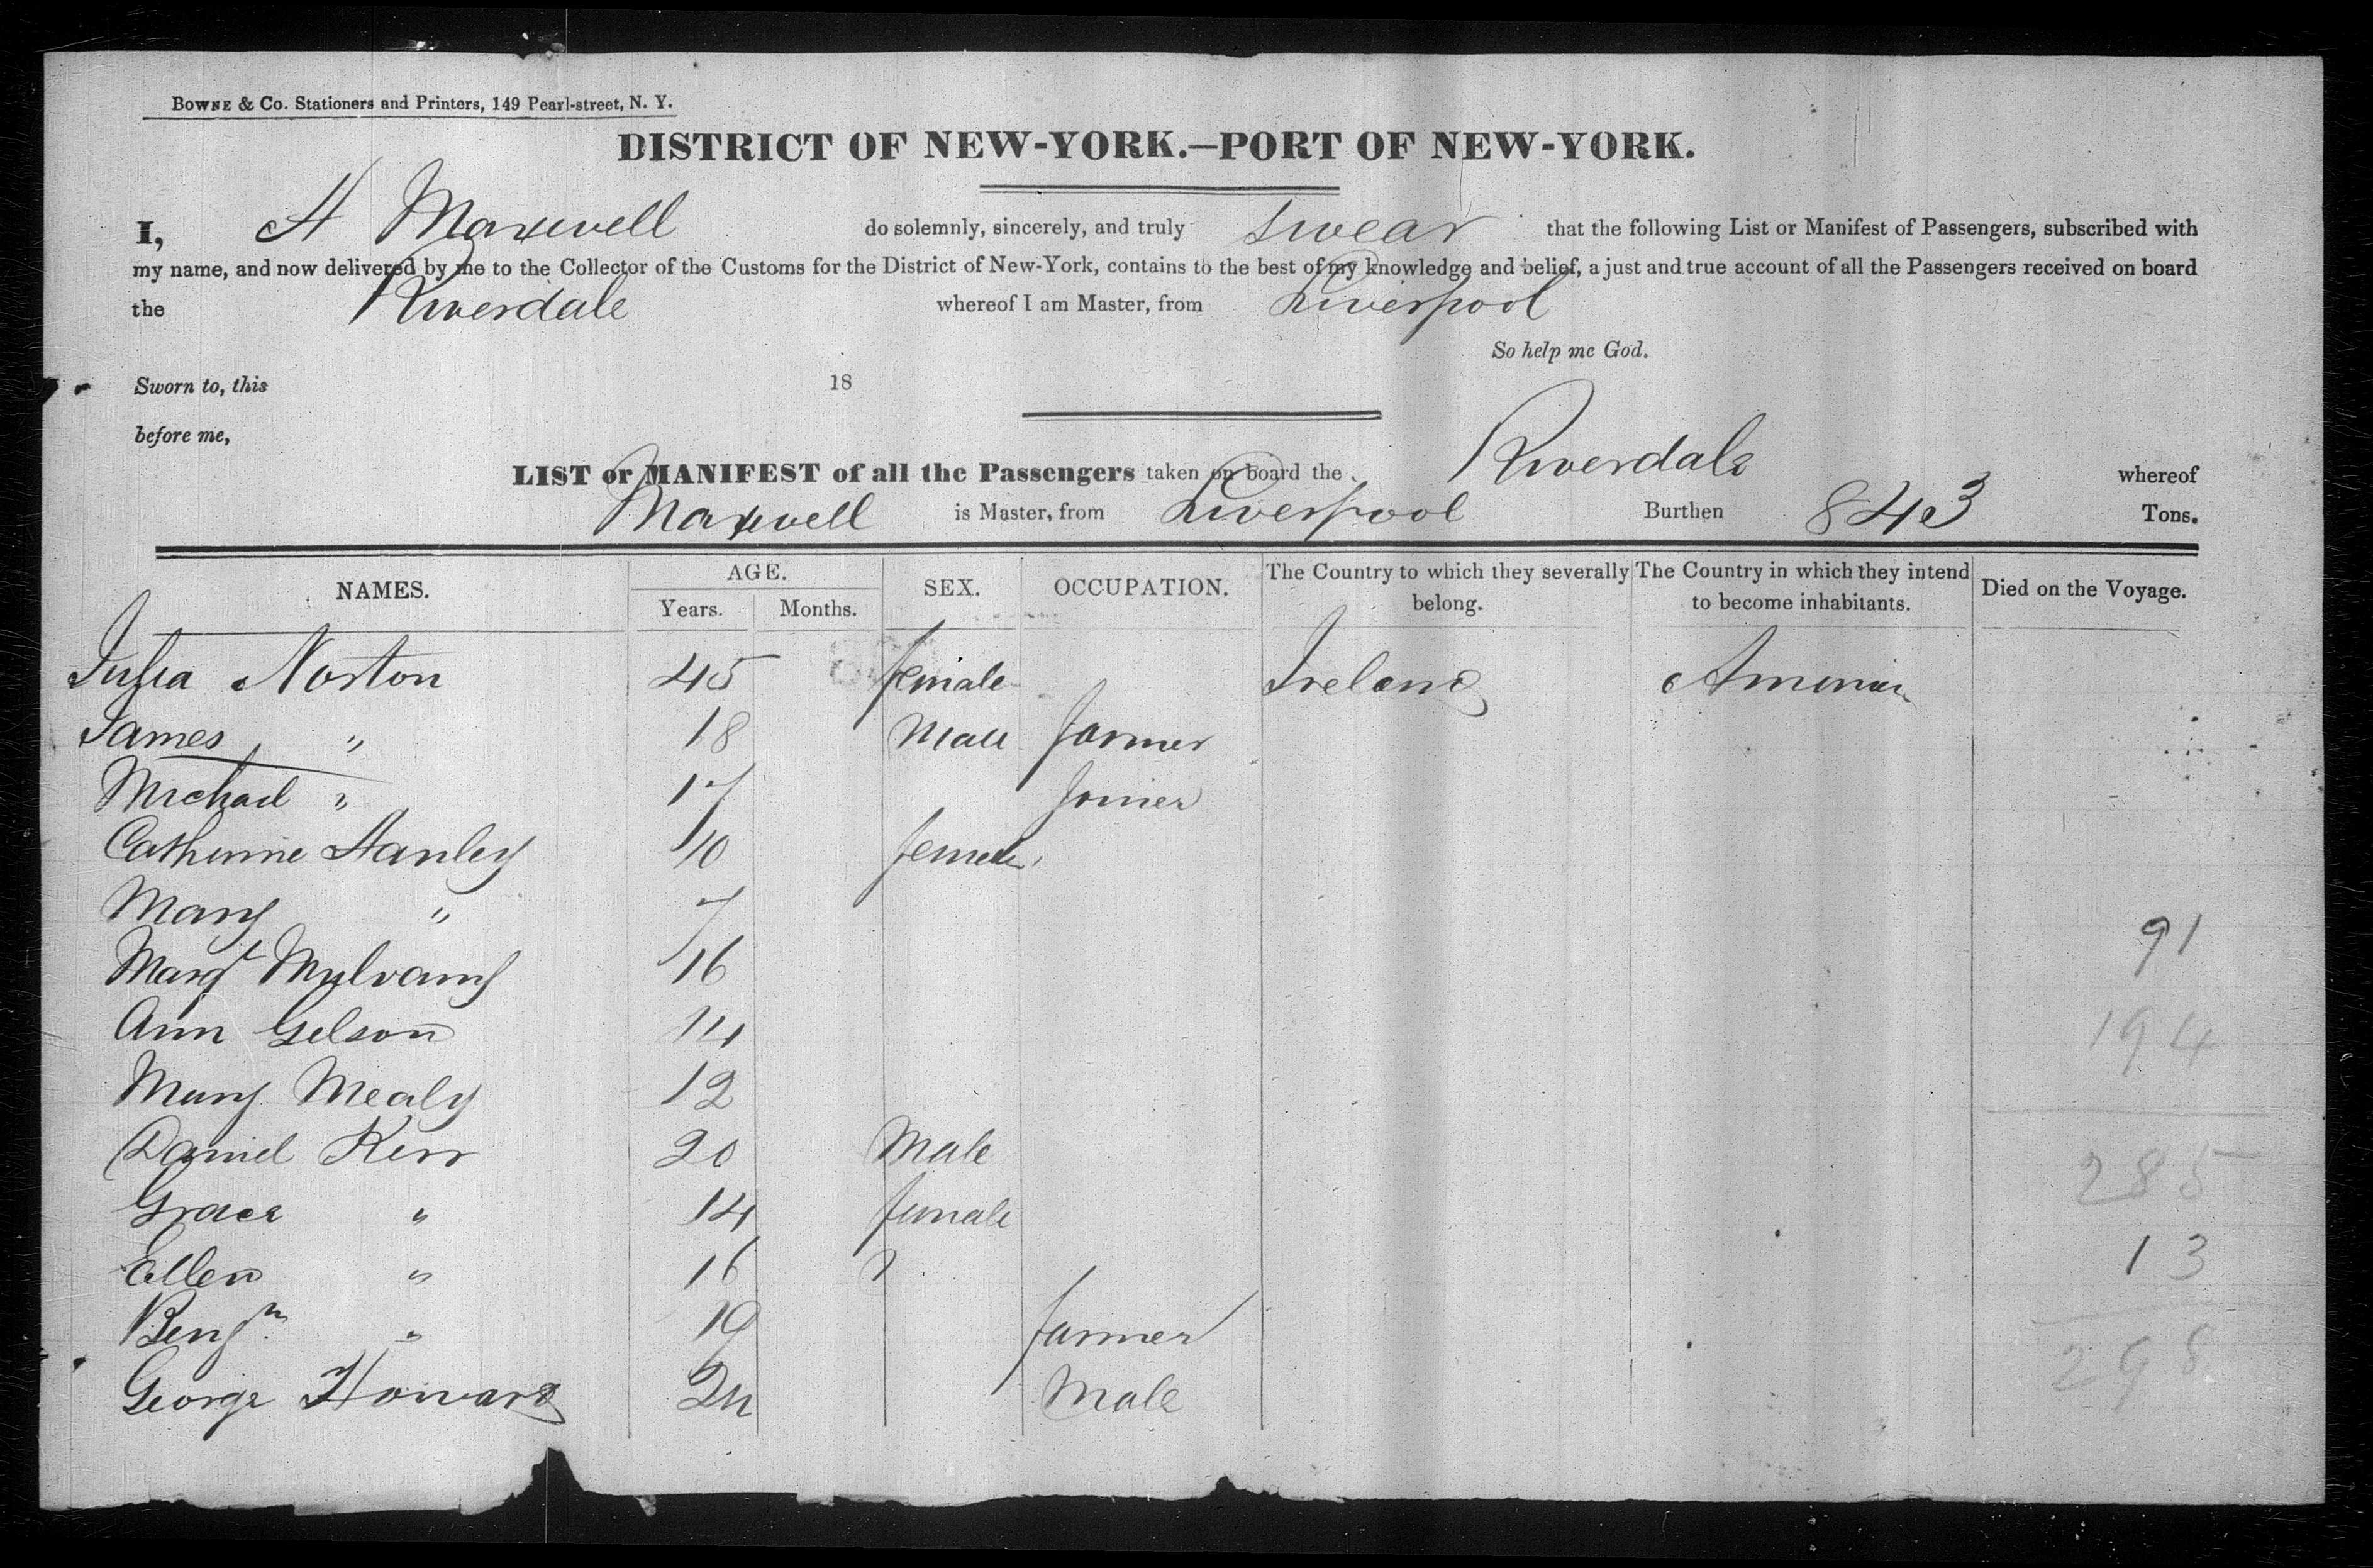 BOWNE & CO. Stationers and Printers, 149 Pearl-street, N. Y.
DISTRICT OF NEW-YORK.—PORT OF NEW-YORK.
I, A Maxwell do solemnly, sincerely, and truly swear that the following List or Manifest of Passengers, subscribed with
my name, and now delivered by me to the Collector of the Customs for the District of New-York, contains to the best of my knowledge and belief, a just and true account of all the Passengers received on board
the Riverdale whereof I am Master, from Liverpool
So help me God.
Sworn to, this 18
before me,
LIST or MANIFEST of all the Passengers taken on board the Riverdale whereof
Maxwell is Master, from Liverpool Burthen 843 Tons.
NAMES. AGE. Years. Months. SEX. OCCUPATION. The Country to which they severally belong. The Country in which they intend to become inhabitants. Died on the Voyage.
Julia Norton 45 female Ireland America
James " 18 Male farmer
Michael " 17 joiner
Catherine Hanley 10 female
Mary " 7
91
Margt 16
Ann Gelson 14
194
Mary Mealy 12
Daniel Kerr 20 Male
285
Grace " 14 female
Ellen " 16 "
13
Benjn " 19 farmer
298
George Howard 24 Male